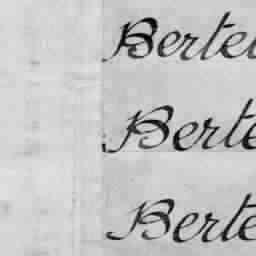 Bertel
Berte
Berte